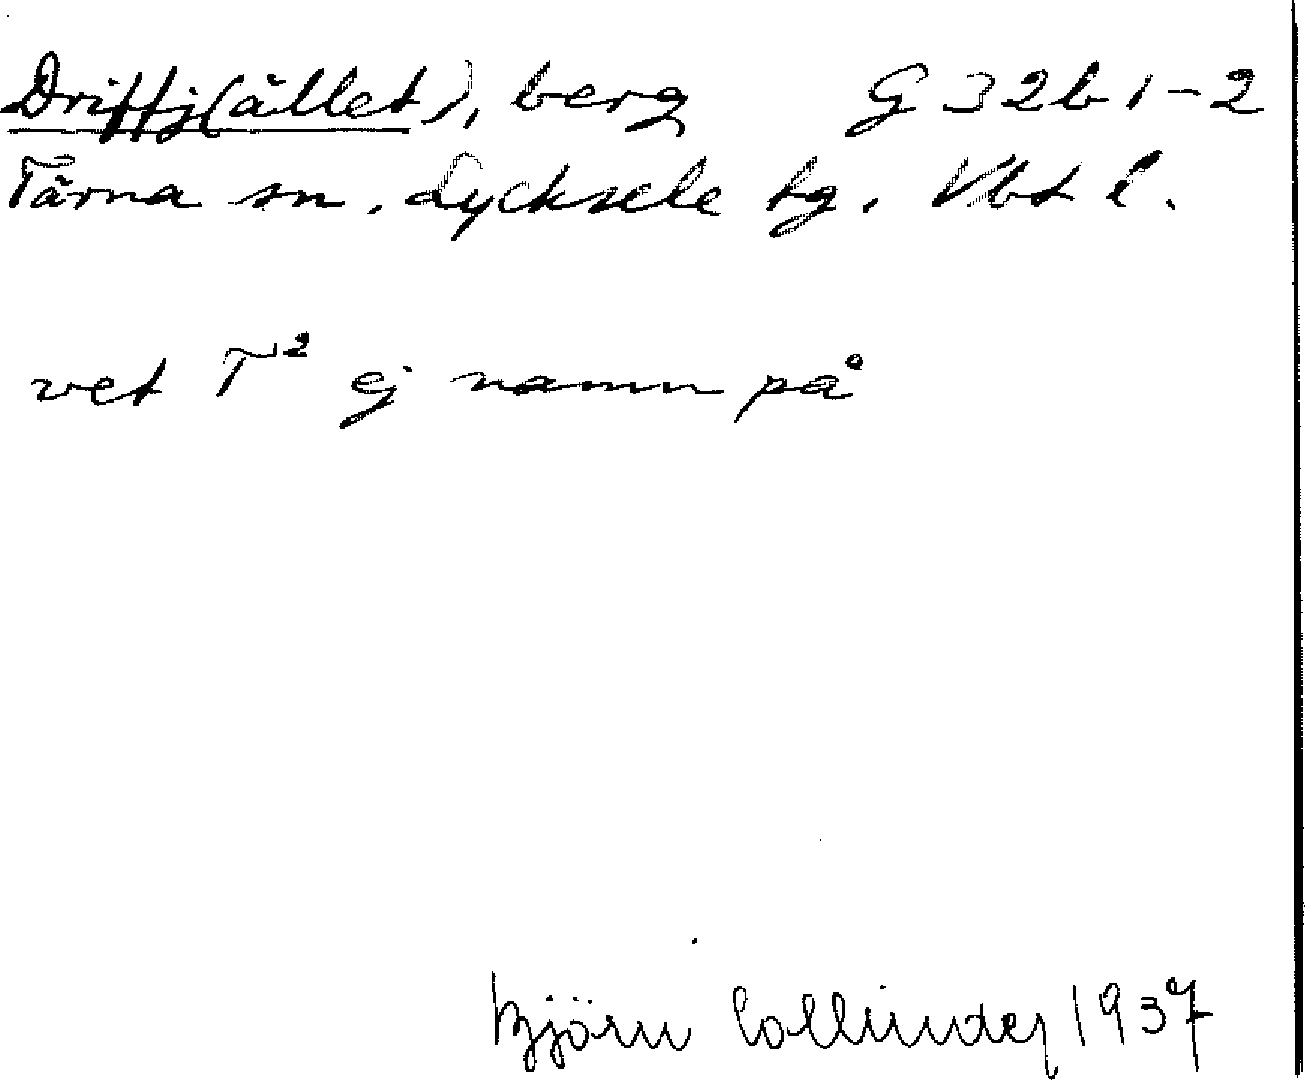 Driffj(ället), berg G 32b 1-2
Tärna sn. Lycksele lg. Vbt l.
vet T² ej namn på
Björn Collinder 1937